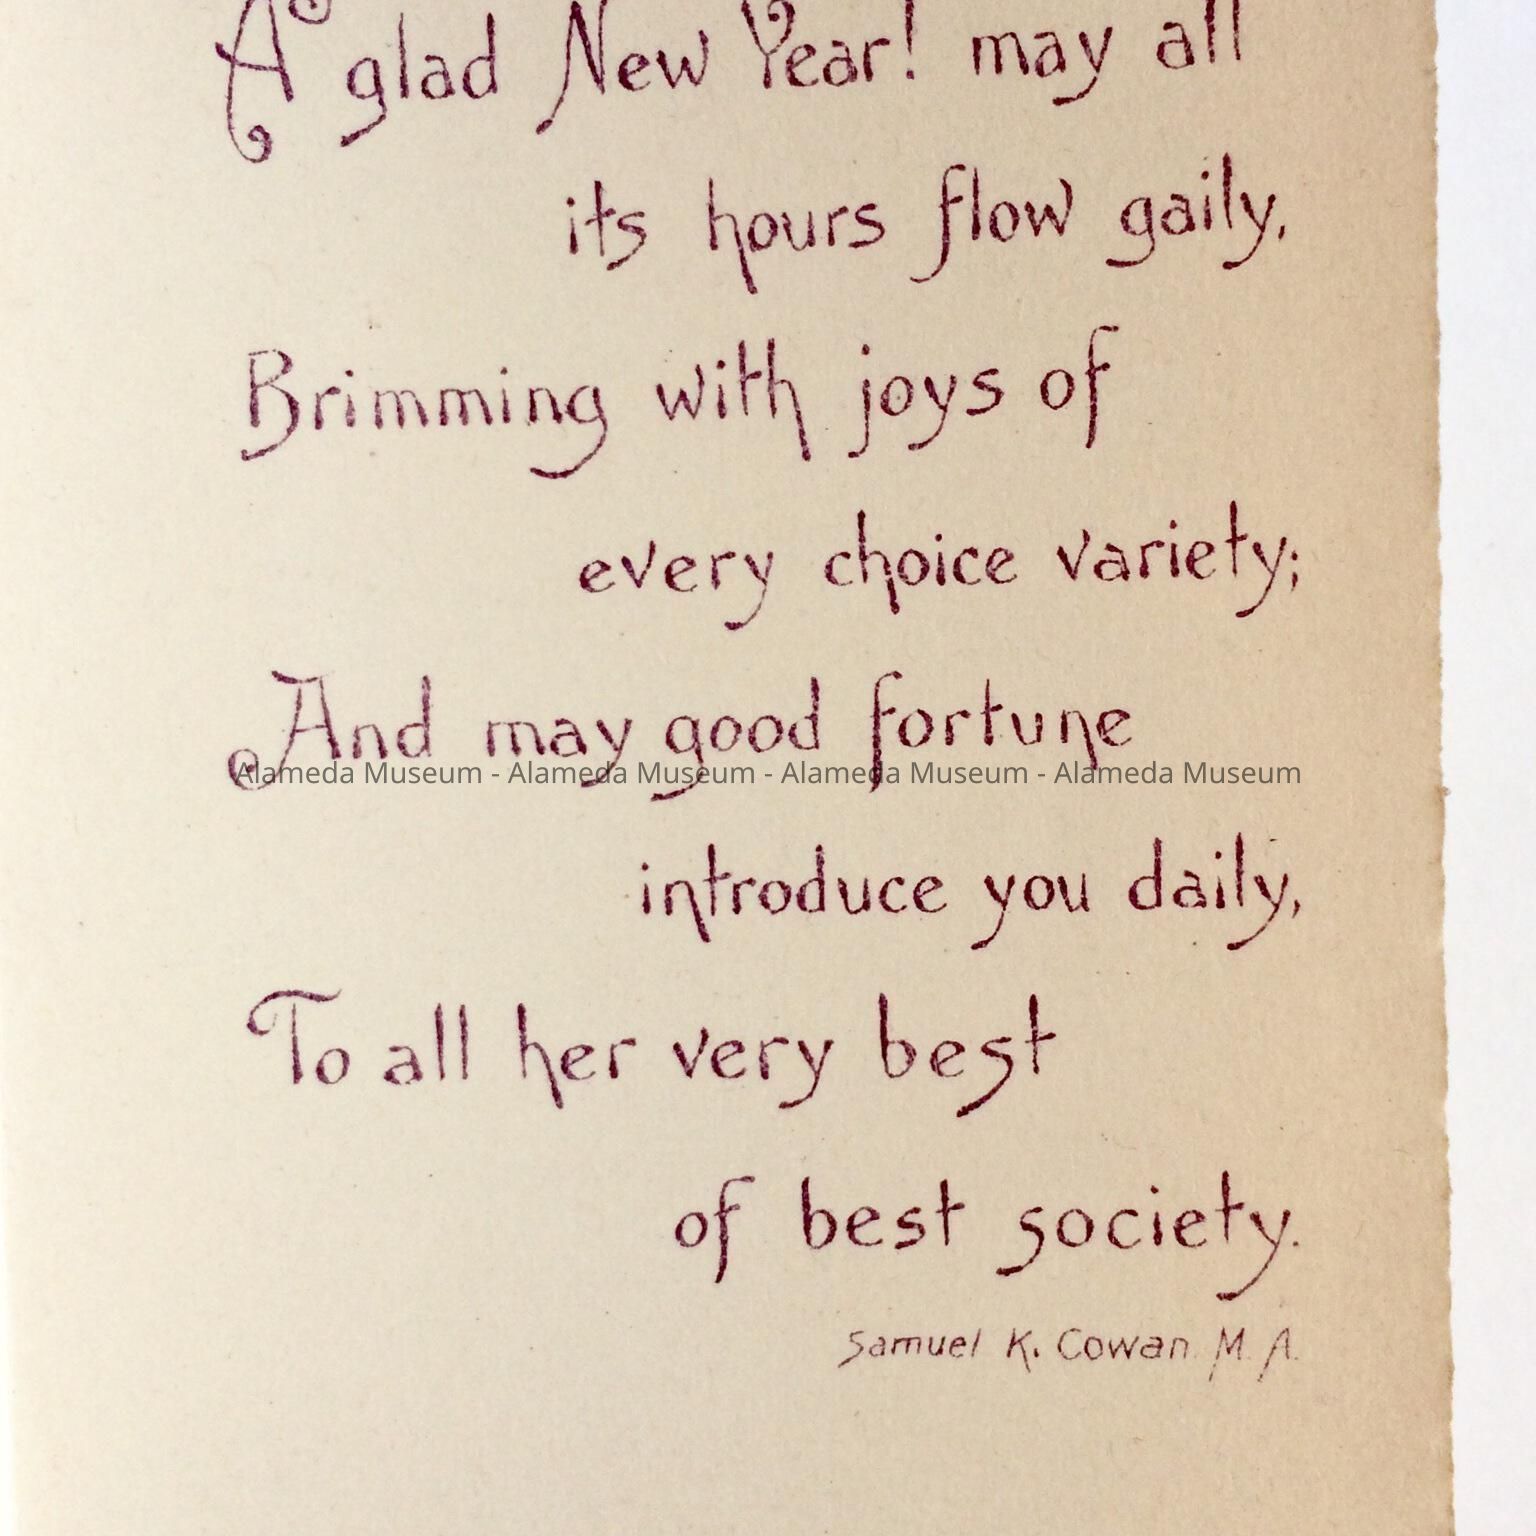 A glad New Year! may all
its hours flow gaily,
Brimming with joys of
every choice variety;
And may good fortune
Alameda Museum - Alameda Museum - Alameda Museum - Alameda Museum
introduce you daily,
To all her very best
of best society.
Samuel K. Cowan. M. A.